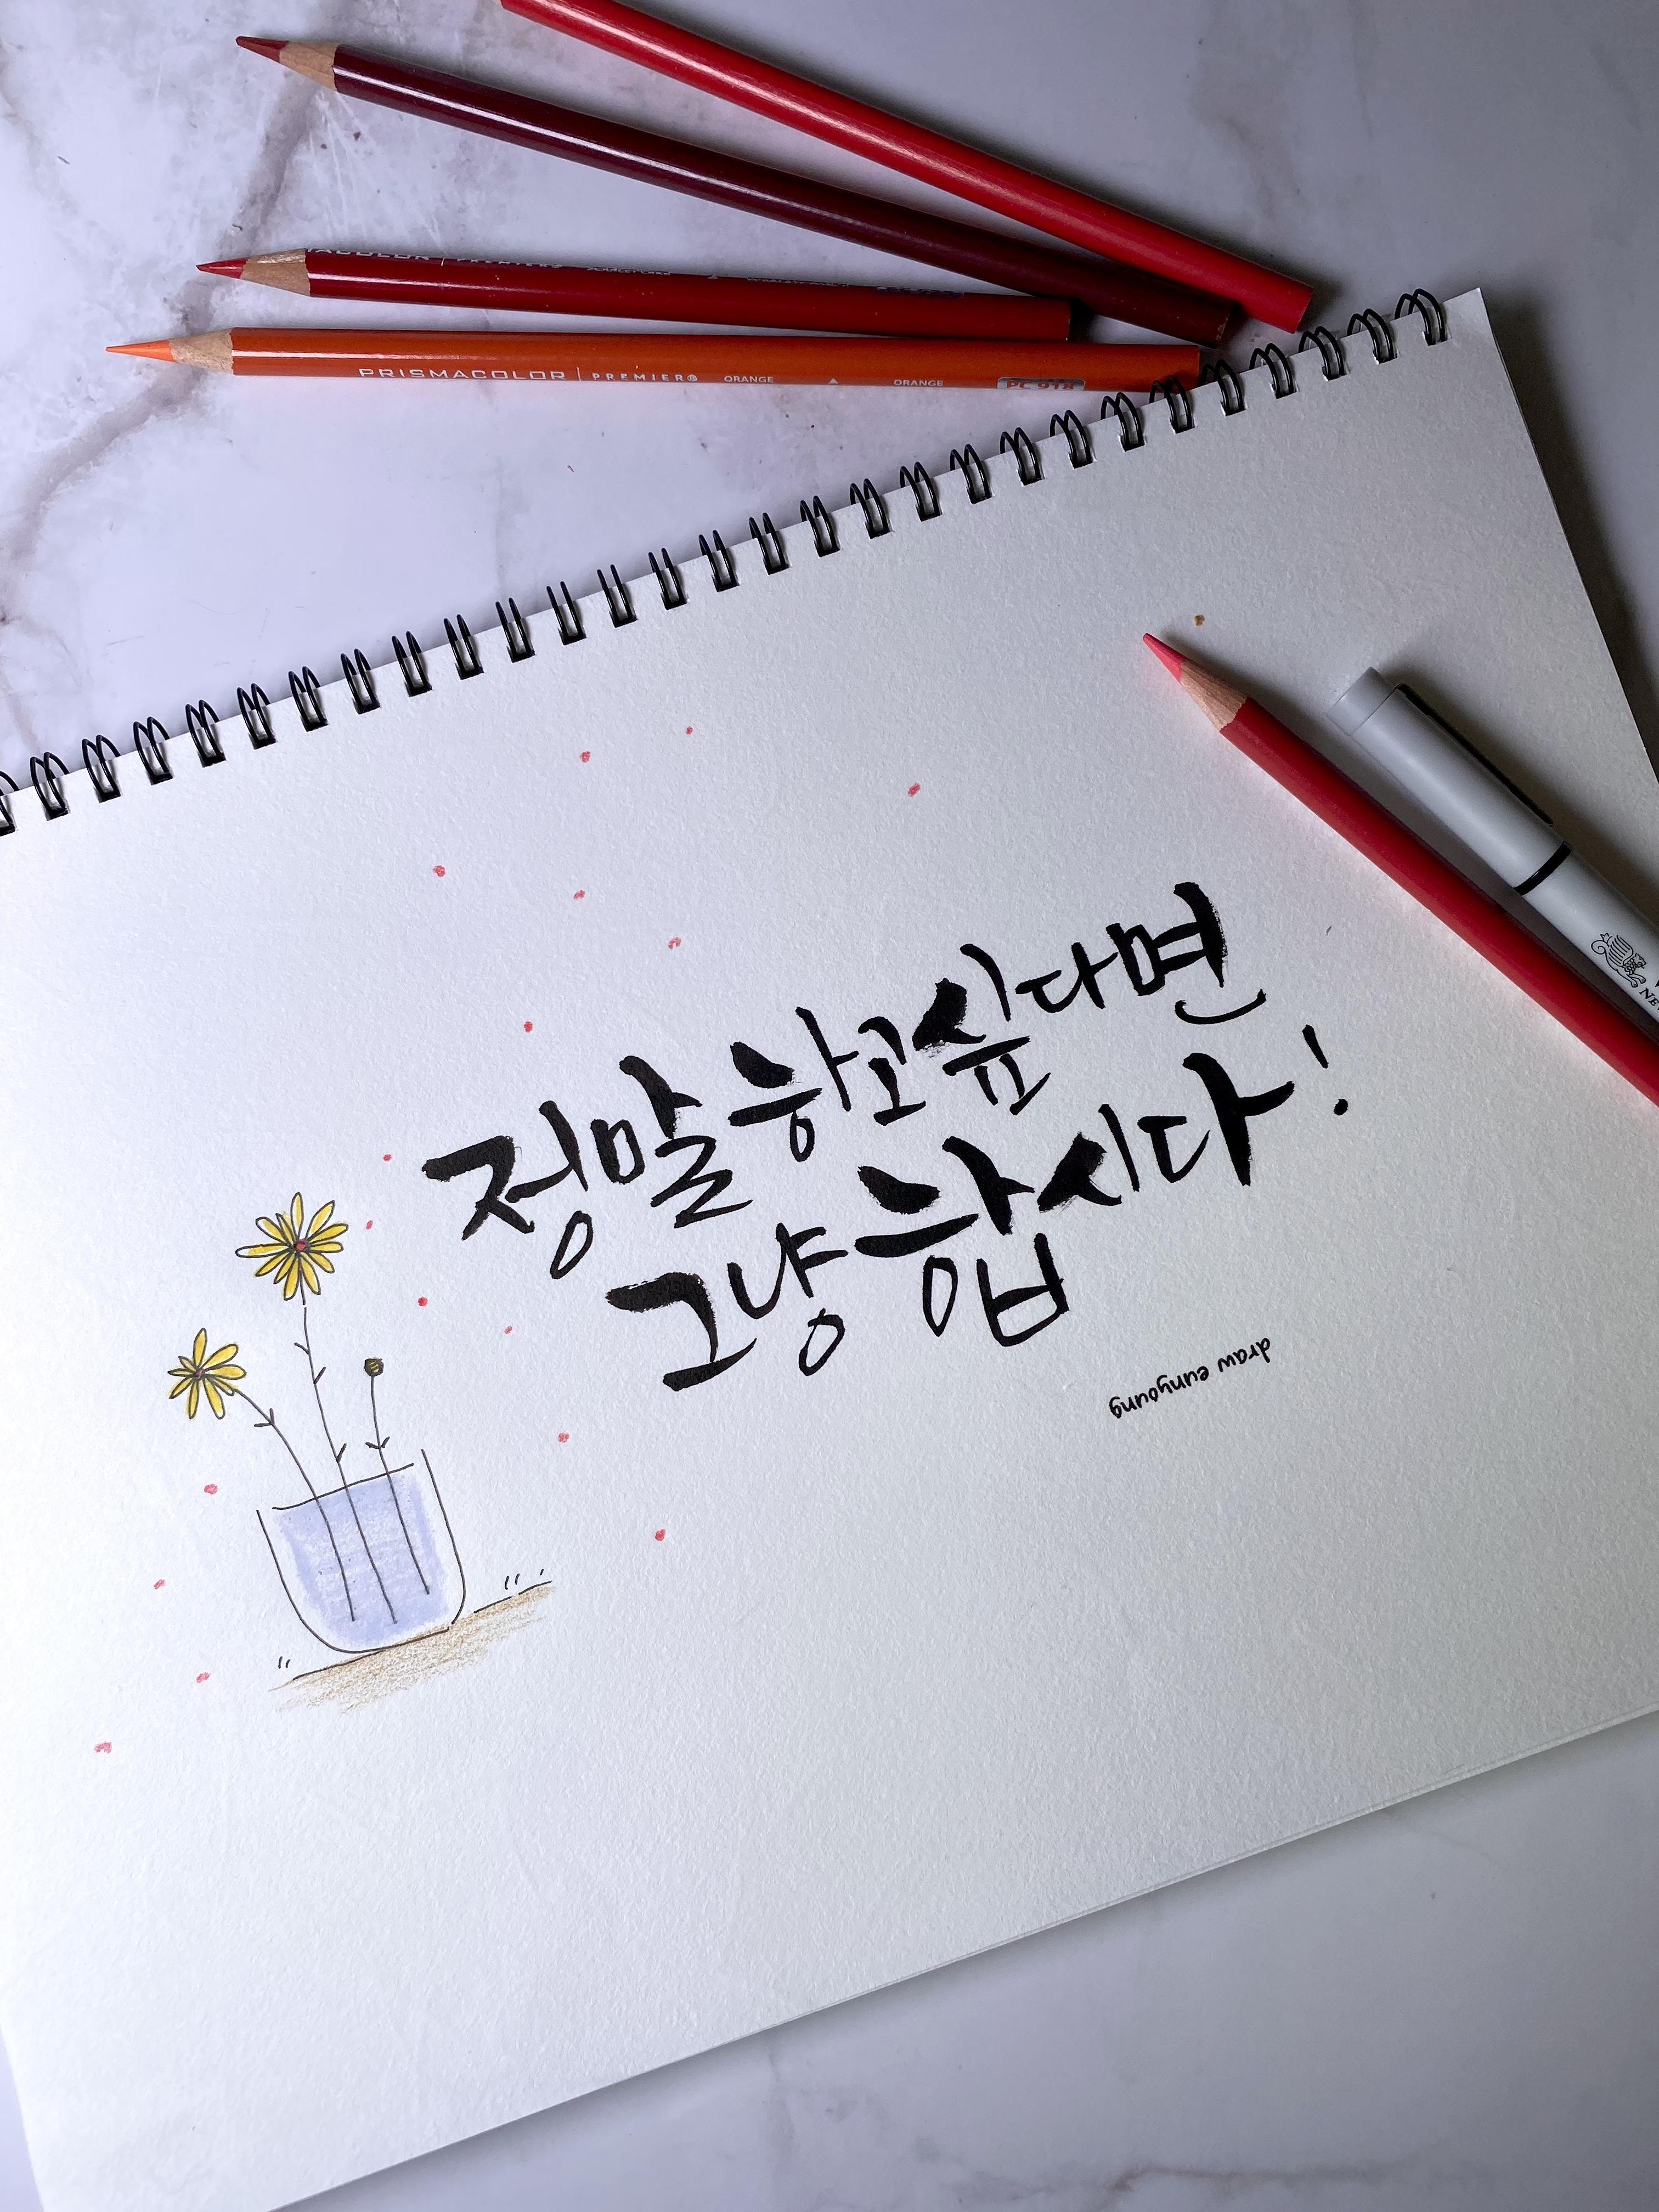 PRISMACOLOR | PREMIER® ORANGE ORANGE PC 918
정말 하고 싶다면
그냥 합시다!
draw eunyoung